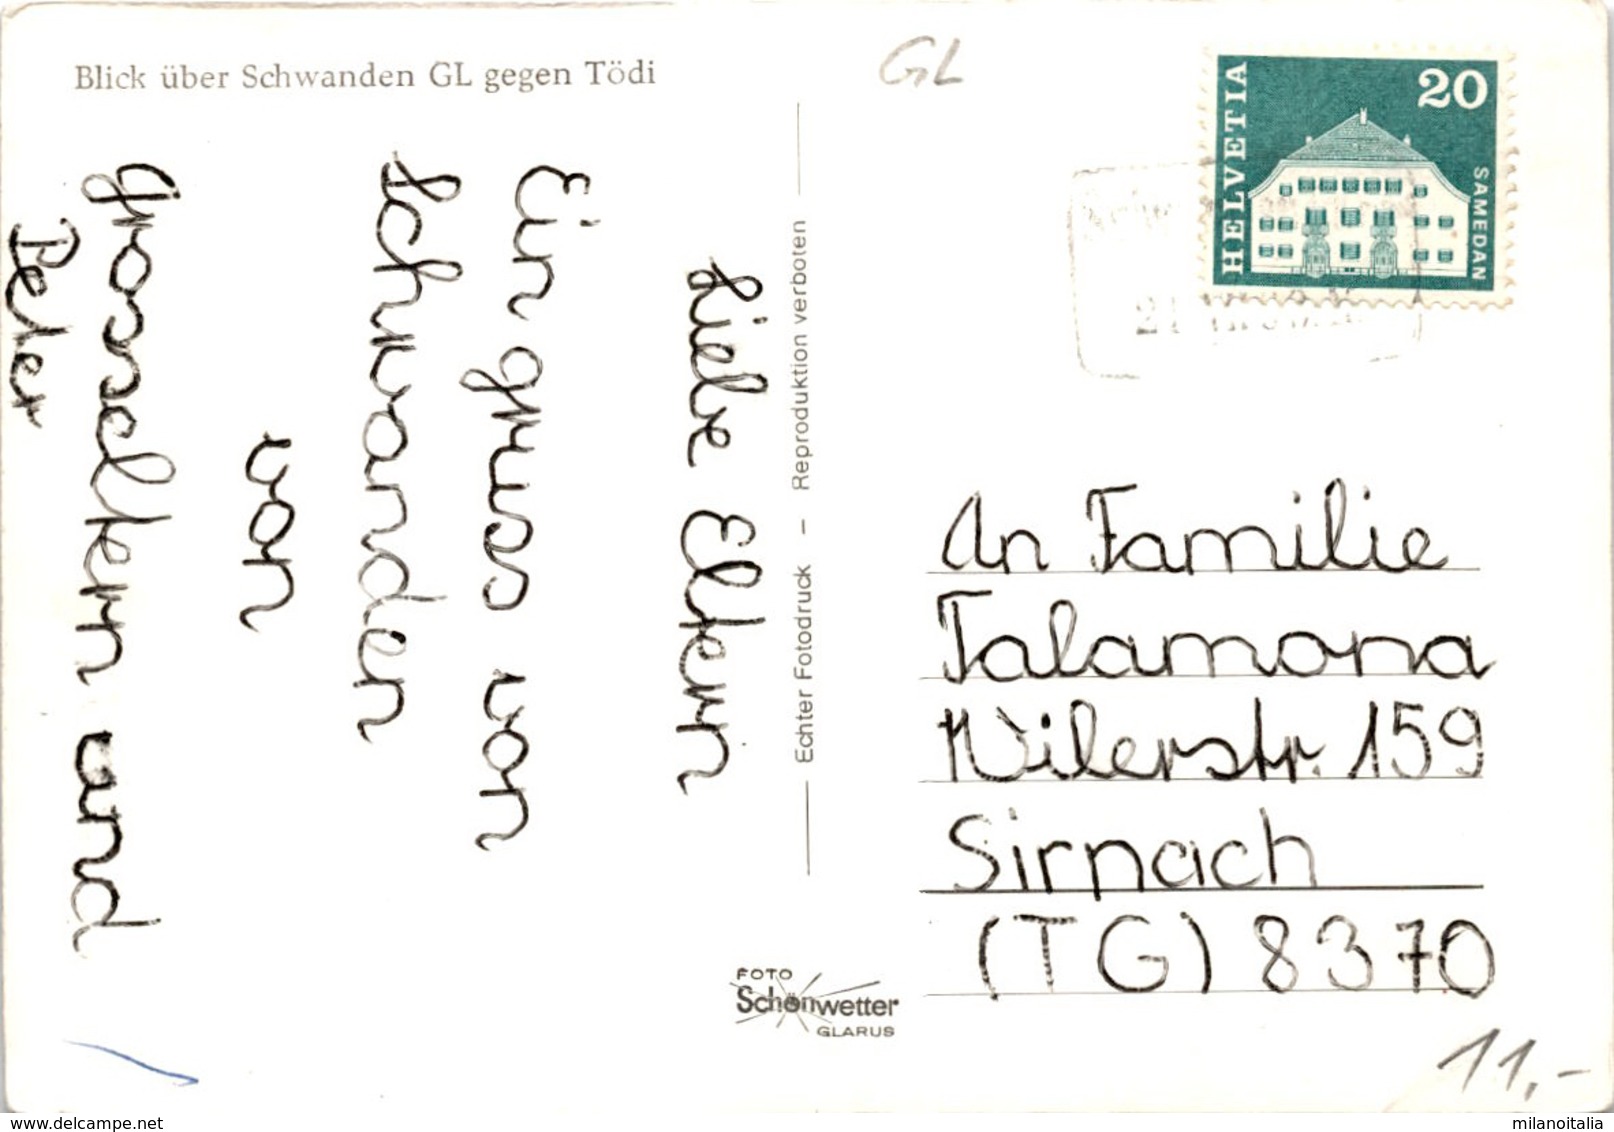 Blick über Schwanden GL gegen Tödi
GL
HELVETIA
20
SAMEDAN
21
Liebe Eltern
Ein gruss von
Schwanden
von
grosseltern und
Peter
Echter Fotodruck – Reproduktion verboten
An Familie
Talamona
Wilerstr. 159
Sirnach
(TG) 8370
FOTO
Schönwetter
GLARUS
11,-
http://www.delcampe.net
milanoitalia